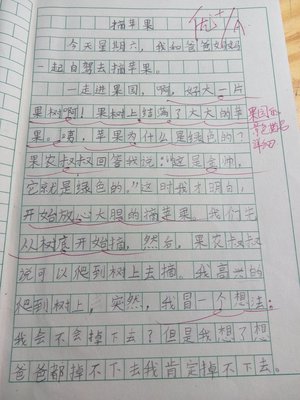 摘苹果
优+/A
今天星期六，我和爸爸妈妈
一起自驾去摘苹果。
一走进果园，啊，好大一片
果树啊！果树上结满了大大的苹
果。咦，苹果为什么是绿色的？
果农叔叔回答我说：“这是
它就是绿色的。”这时我才明白，
开始放心大胆的摘苹果。我们先
从树底开始摘，然后，果农叔叔
说可以爬到树上去摘。我高兴的
爬到树上，突然，我冒一个想法：
我会不会掉下去？但是我想了想
爸爸都掉不下去我肯定掉不下去。
果园的
景色描写